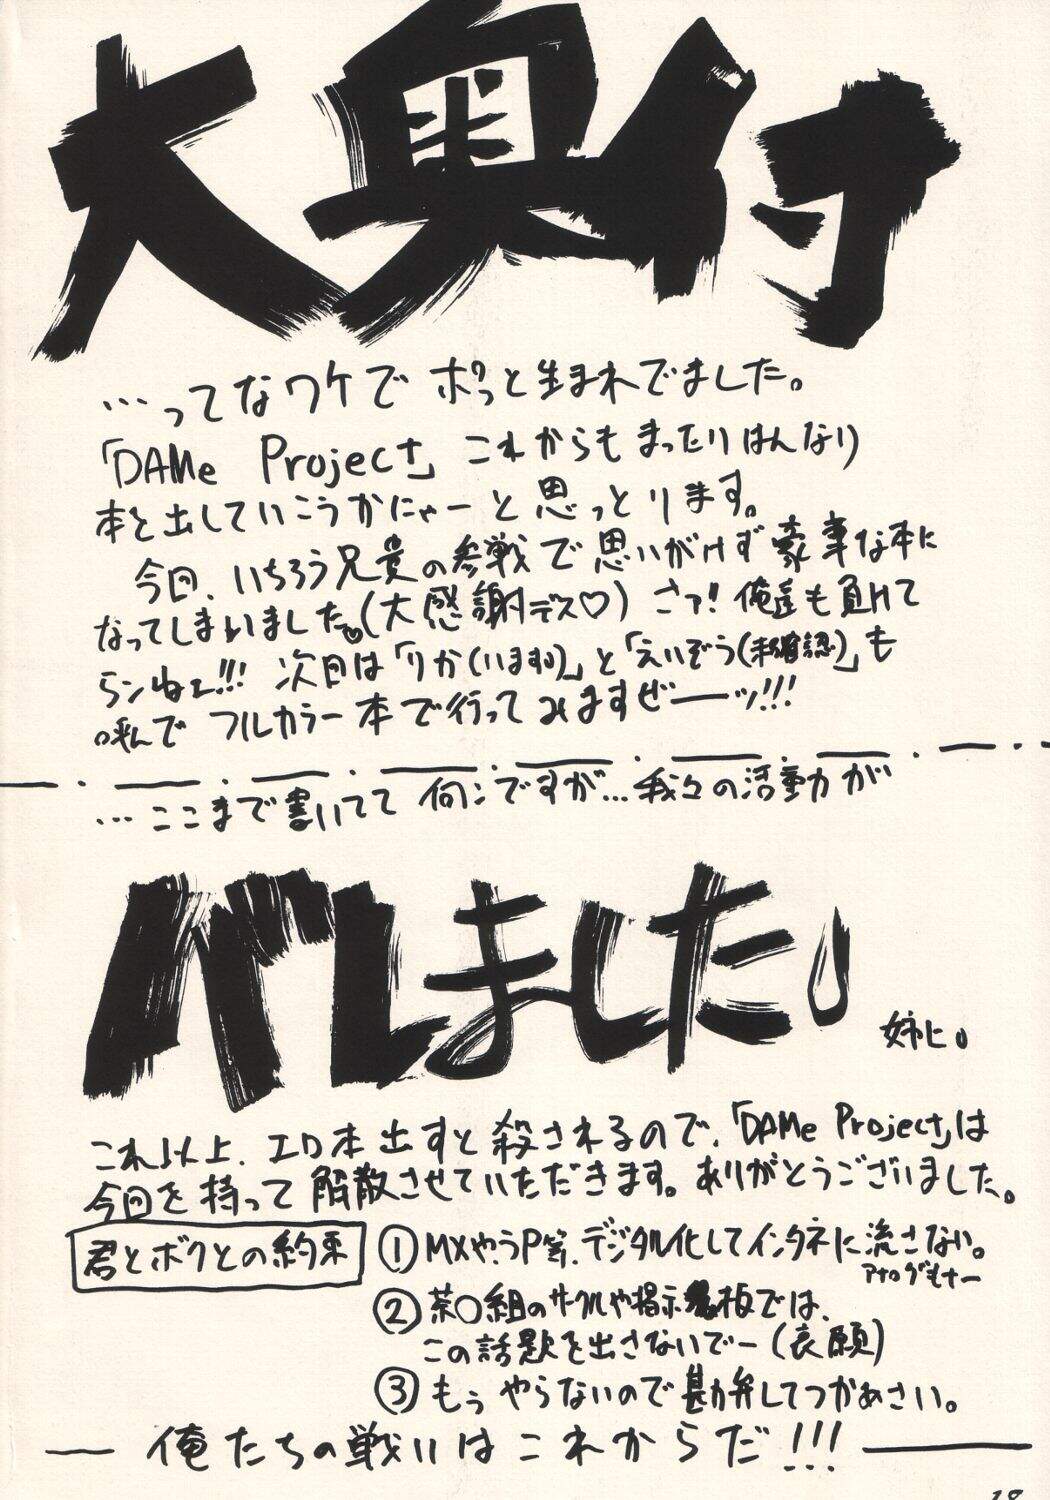 大奥付
…ってなワケでポっと生まれでました。
「DAMe Project」これからもまったりはんなり
本を出していこうかにゃーと思っとります。
今回、いちろう兄貴の参戦で思いがけず豪華な本に
なってしまいました(大感謝デス♡) さァ!俺達も負けて
らンねェ!!! 次回は「りか(います)」と「えいぞう(未確認)」も
呼んでフルカラー本で行ってみますぜーーッ!!!
…ここまで書いてて何ンですが…我々の活動が
バレました。
姉ヒ。
これ以上、エロ本出すと殺されるので、「DAMe Project」は
今回を持って解散させていただきます。ありがとうございました。
君とボクとの約束
①MXやうP等、デジタル化してインタネに流さない。
アナログもナー
②茶○組のサークルや掲示板では、
この話題を出さないでー(哀願)
③もぅやらないので勘弁してつかぁさい。
俺たちの戦いはこれからだ!!!
18